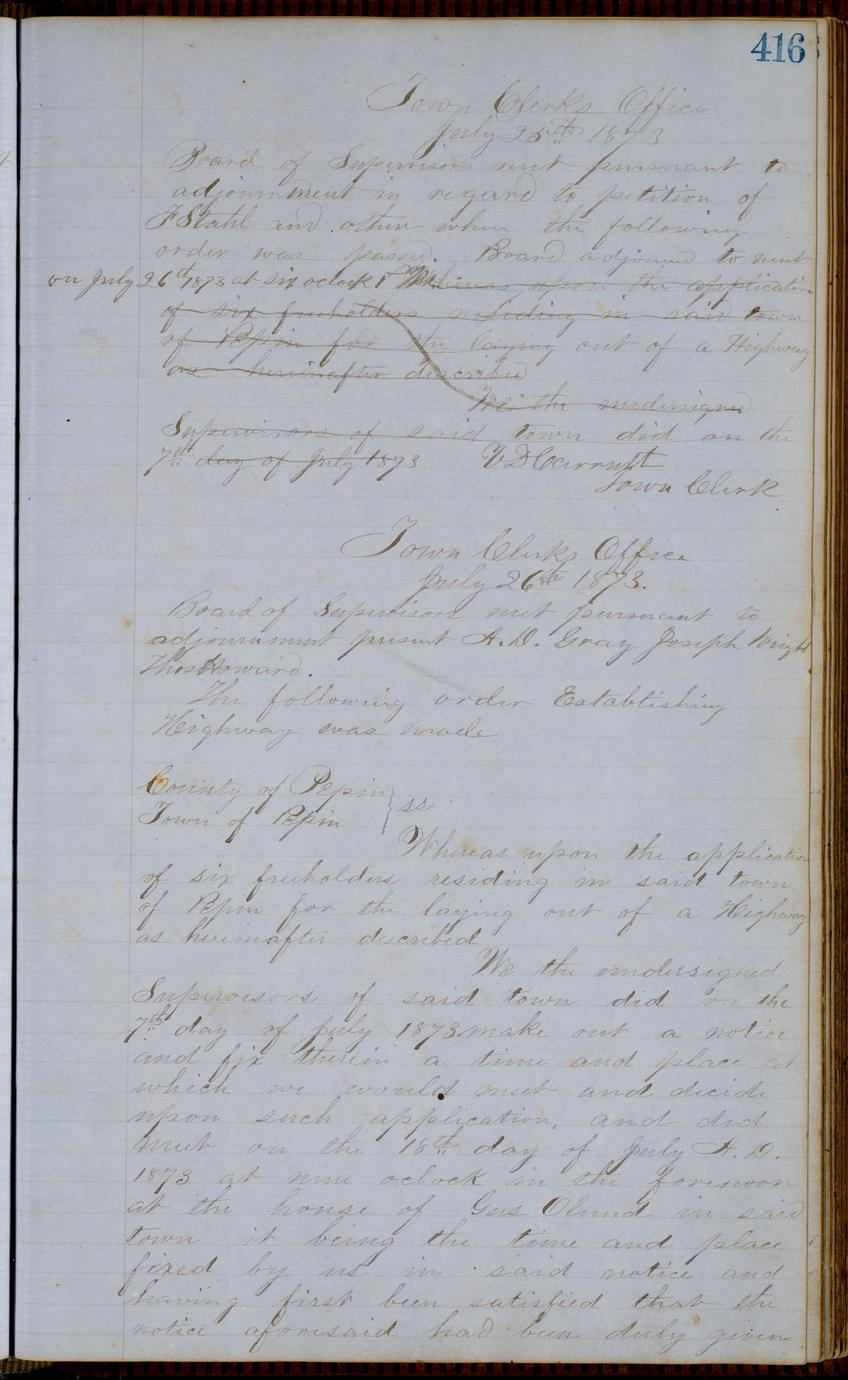 416
Town Clerks Office
July 25th 1873
Board of Supervisors met pursuant to
adjournment in regard to petition of
F Stahl and others when the following
order was passed. Board adjourned to meet
on July 26th 1873 at six oclock P.M. Whereas upon the application
of six freeholders residing in said town
of Pepin for the laying out of a Highway
as hereinafter described
We the undersigned
Supervisors of said town did on the
7th day of July 1873
Town Clerk
Town Clerks Office
July 26th 1873.
Board of Supervisors met pursuant to
adjournment present A.D. Gray Joseph Wright
Thos Howard.
The following order Establishing
Highway was made
County of Pepin } ss
Town of Pepin
Whereas upon the application
of six freeholders residing in said town
of Pepin for the laying out of a Highway
as hereinafter described
We the undersigned
Supervisors of said town did on the
7th day of July 1873 make out a notice
and fix therein a time and place at
which we would meet and decide
upon such application, and did
meet on the 18th day of July A.D.
1873 at nine oclock in the forenoon
at the house of Gus Olund in said
town it being the time and place
fixed by us in said notice and
having first been satisfied that the
notice aforesaid had been duly given